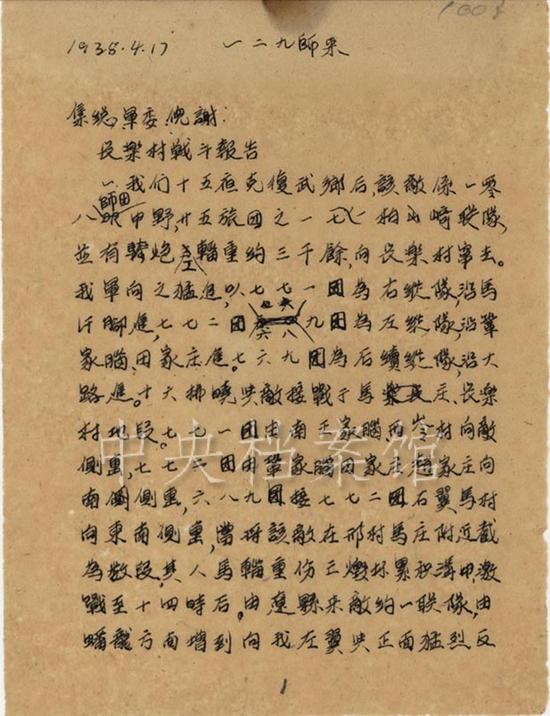 1938.4.17 一二九師來
集總,軍委,倪謝:
長樂村戰斗報告
一、我们十五夜克復武鄉后,該敵係一零
八師田甲野,廿五旅团之一一七、柏崎联隊,
並有騎炮工輜重約三千餘,向長樂村窜去。
我軍向之猛進,以七七一团為右縱隊,沿馬
汗脚進,七七二团六八九团為左縱隊,沿鞏
家腦、田家庄進。七六九团為后續縱隊,沿大
路進。十六拂曉與敵接戰于馬庄、長樂
村地段。七七一团由南王家腦西岑村向敵
側重,七七二团由鞏家腦田家庄家庄向
南側側重,六八九团接七七二团右翼馬村
向東南側重,當將該敵在邢村馬庄附近截
為數段,其人馬輜重伤亡殘林累积溝中,激
戰至十四時后,由遼縣來敵約一联隊,由
蟠龍方面增到向我左翼與正面猛烈反
1
中央档案馆